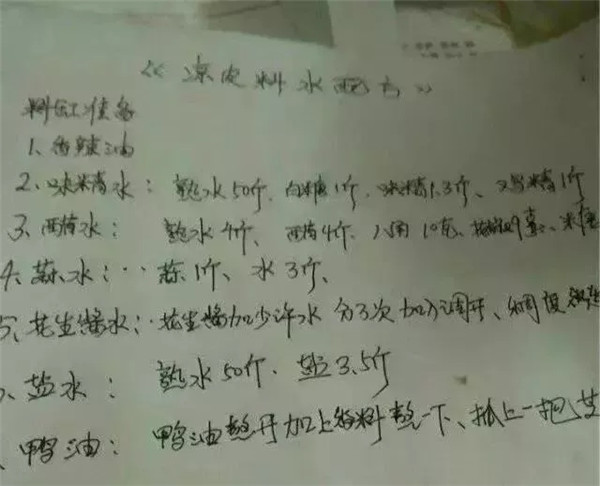 《凉皮料水配方》
料缸准备
1、香辣油
2、味精水：熟水50斤、白糖1斤、味精1.3斤、鸡精1斤
3、西楜水：熟水4斤、西楜4斤、八角10克、
4、蒜水：蒜1斤、水3斤、
5、花生酱水：花生酱加少许水分3次加入调开、稠度
、盐水：熟水50斤、盐3.5斤
、鸭油：鸭油熬开加上香料熬一下、抓上一把